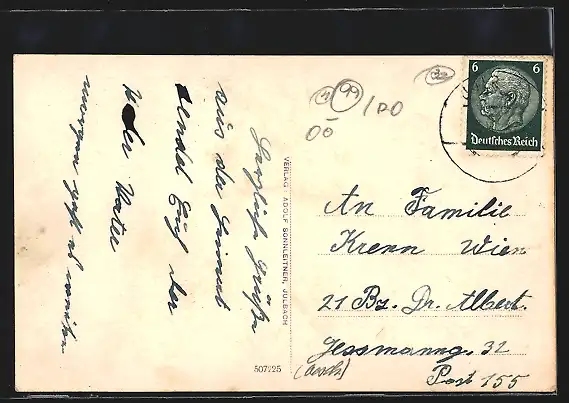 Herzliche Grüße
aus der Heimat
sendet Euch der
Vater
morgen geht es weiter
VERLAG: ADOLF SONNLEITNER, JULBACH
507/25
6 6
Deutsches Reich
An Familie
Krenn Wien
21 Bz. Dr. Albert
Gessmanng. 32
Post 155